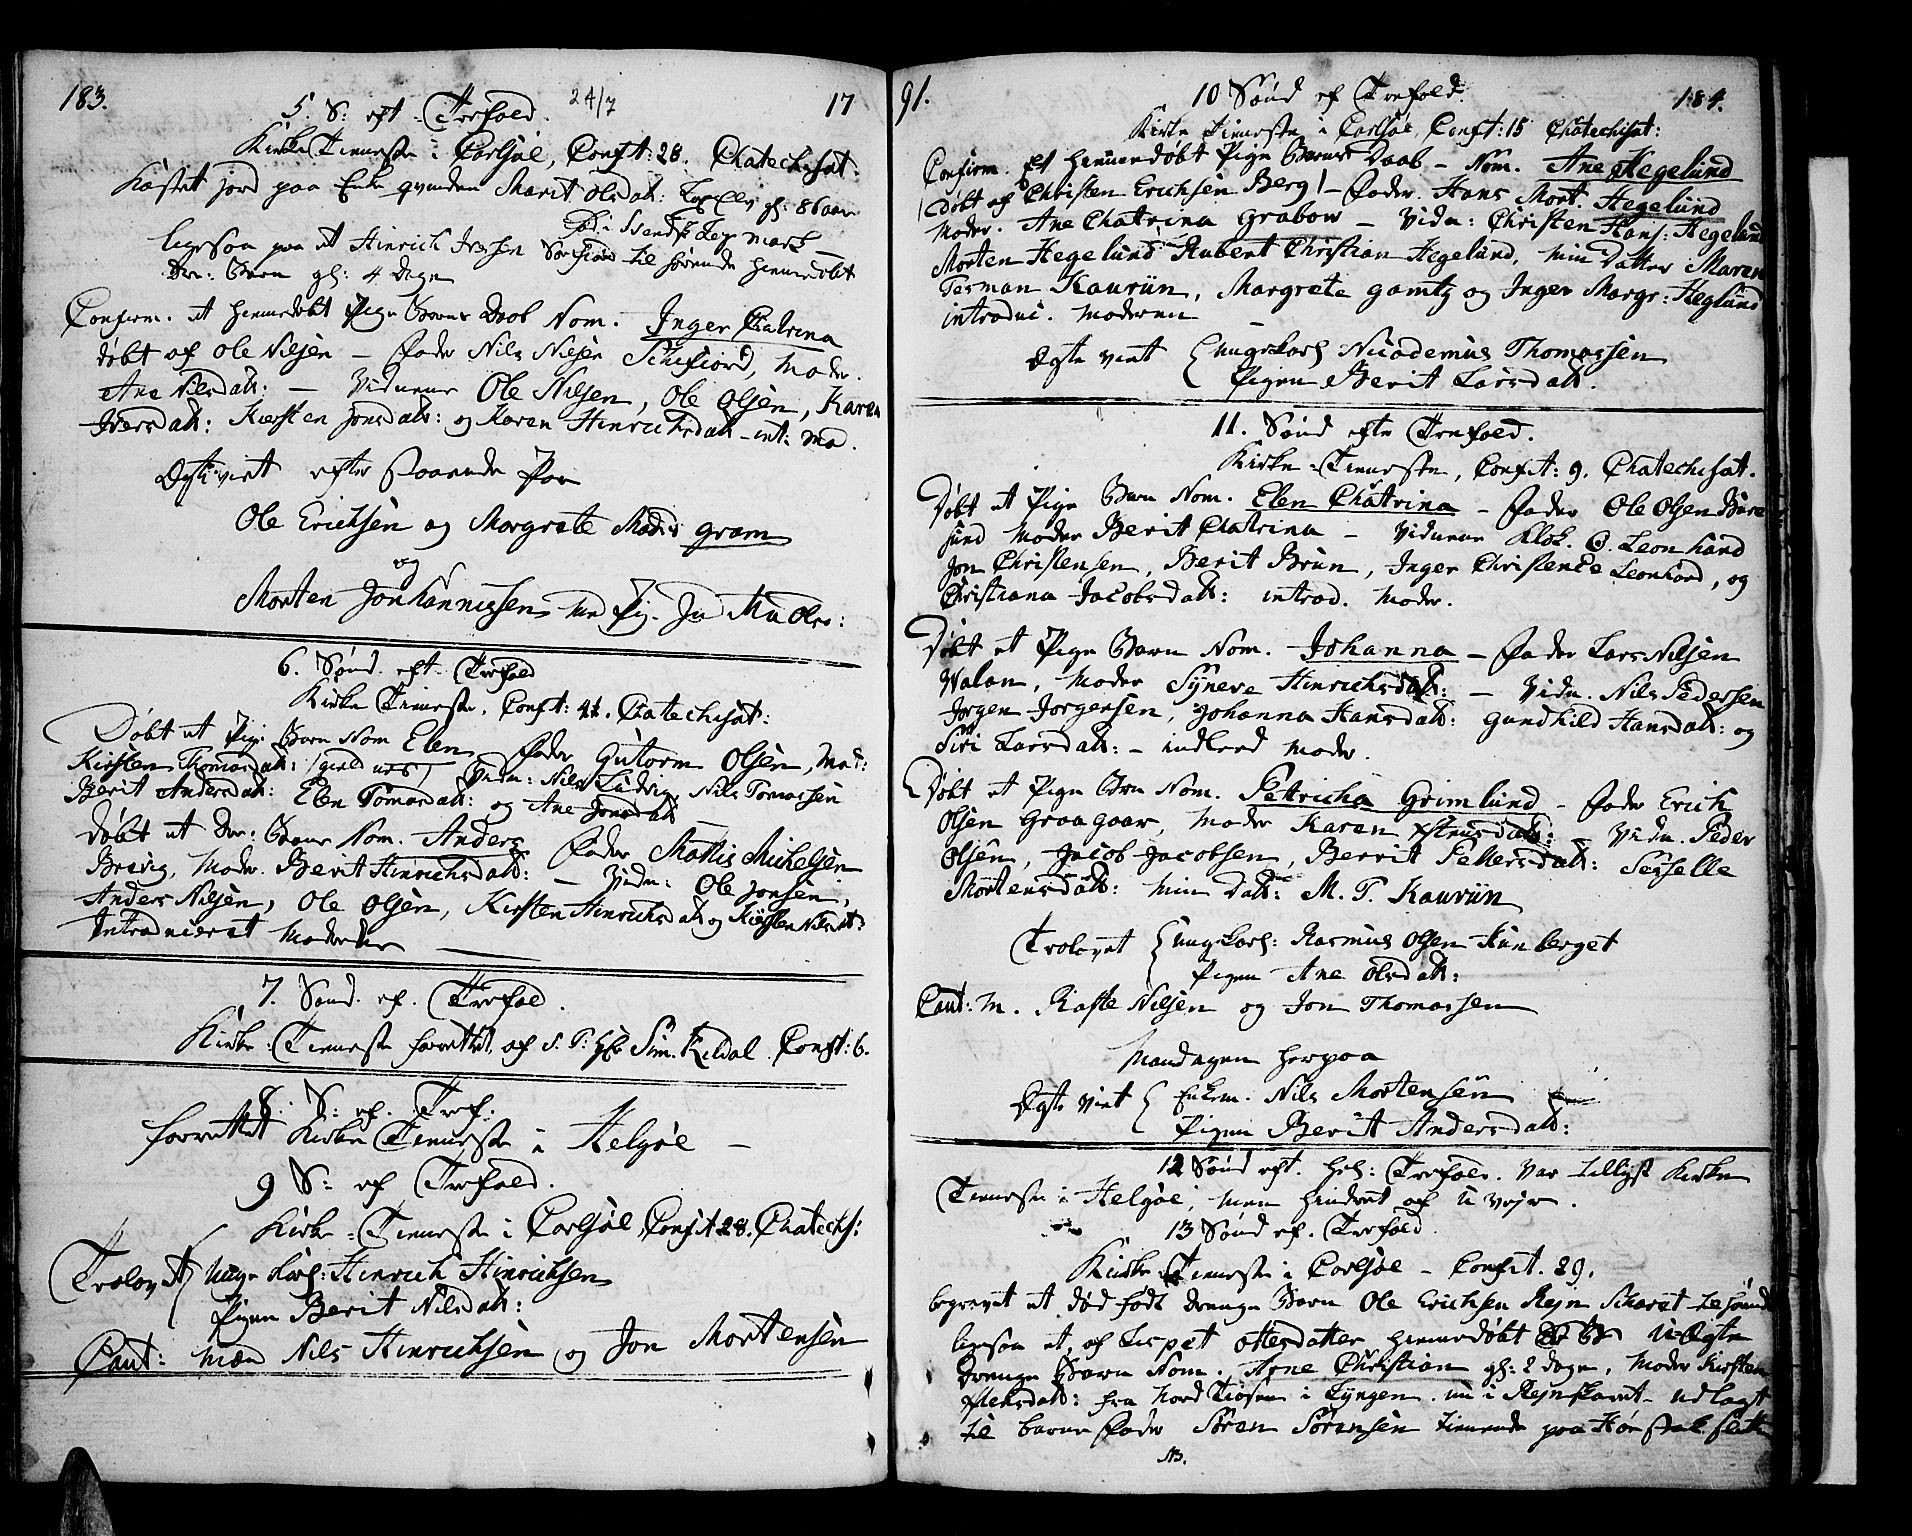 183. 24/7 17
5. S: eft. Trefold.
Kirke Tieneste i Carlsøe, Conft: 28. Chatechisat:
Kastet jord paa Enke qvinden Marit Olsdat: gl: 86 aar
ligesaa paa et Hinrich Iversen til hørende hiemedøbt
Dr: Barn gl: 4 Dage
Confirm. et hiemedøbt Pige Barns Daab Nom. Inger Chatrina
døbt af Ole Nilsen – Fader Nils Nilsen Schifiord, Moder.
Ane Nilsdat: – Vidnerne Ole Nilsen, Ole Olsen, Karen
Iversdat: Kirsten Jonsdat: og Karen Hinrichsdat – int: Mo.
Ægte viet efter staaende Par
Ole Erichsen og Margrete Mads gram
og
Morten Johannissen med Pig.
6. Sønd. eft. Trefold
Kirke Tieneste, Conft: 41. Chatechisat:
Døbt et Pige Barn Nom Elen Fader Gutorm Olsen, Mod:
Kirsten Thomasdat: Vidn: Nils Ludvig, Nils Tomassen
Berit Andersdat: Elen Tomasdat: og Ane Jonsdat
Døbt et Dr: Barn Nom. Anders Fader Mattis Michelsen
Brevig, Moder. Berit Hinrichsdat: – Vidn: Ole Jonsen,
Anders Nilsen, Ole Olsen, Kirsten Hinrichsdat og Kirsten Nilsdat:
Introduceret Moderen
7. Sønd. ef. Trefold.
Kirke Tieneste forrettet af S. T: Hr Sim. Kildal Conft: 6.
8. S: ef. Tref:
forrettet Kirke Tieneste i Helgøe –
9 S: ef Trefold.
Kirke Tieneste i Carlsøe, Conft 28. Chatechs:
Trolovet Unge Karl: Hinrich Hinrichsen
Pigen Berit Nilsdat:
Caut: Mæn Nils Hinrichsen og Jon Mortensen
91. 184.
10 Sønd ef Trefold.
Kirke Tieneste i Carlsøe, Conft: 15 Chatechisat:
Confirm. Et hiemedøbt Pige Barns Daab – Nom. Ane Hegelund
(døbt af Christen Erichsen Berg) – Fader. Hans Mort. Hegelund
Moder. Ane Chatrina Grabow – Vidn: Christen Hans: Hegelund
Morten Hegelund Rubert Christian Hegelund, min Datter Maren
Terman Kaurin, Margrete gamtz og Inger Margr: Heglund
introduc. Moderen –
Ægte viet Ungekarl Nicodemus Thomassen
Pigen Berit Larsdat.
11. Sønd efte Trefold.
Kirke Tieneste, Conft: 9. Chatechisat.
Døbt et Pige Barn Nom. Elen Chatrina – Fader Ole Olsen Bure
sund Moder Berit Chatrina – Vidnerne Klok. O. Leonhard
Jon Christensen, Berit Brun, Inger Christence Leonhard, og
Christiana Jacobsdat: introd. Moder.
Døbt et Pige Barn Nom. Johanna – Fader Lars Nilsen
Walan, Moder Synere Hinrichsdat: – Vidn. Nils Pedersen
Jørgen Jørgensen, Johanna Hansdat: Gundhild Hansdat: og
Siri Larsdat: – indleed Moder.
Døbt et Pige Brn Nom. Pettricha Grimlund – Fader Erich
Olsen Graagaar, Moder Karen – Vidn. Peder
Olsen, Jacob Jacobsen, Berrit Pettersdat: Serselle
Mortensdat: min Dat: M. T. Kaurin
Trolovet Ungekarl: Rasmus Olsen
Pigen Ane Olsdat:
Caut: M. Raste Nilsen og Jon Thomassen
Mandagen herpaa
Ægte viet Enkem. Nils Mortensen
Pigen Berit Andersdat:
12 Sønd eft. hel: Trefold. Var Tillyst Kirke
Tieneste i Helgøe, men hindret af U Vejr.
13 Sønd ef. Trefold
Kirke Tieneste i Carlsøe – Confit. 29.
begravet et død født Drenge Barn Ole Erichsen Rejn Scharet tilhørende
ligesaa et, af Lispet Ottesdatter hiemedøbt U-Ægte
Drenge Barn Nom. Arne Christian gl: 2 dage. Moder Kirsten
Nielsdat: fra Nord Kiosen i Lyngen. nu i Rejnskaret – udlagt
til barne Fader Søren Sørensen tienende paa
NB.